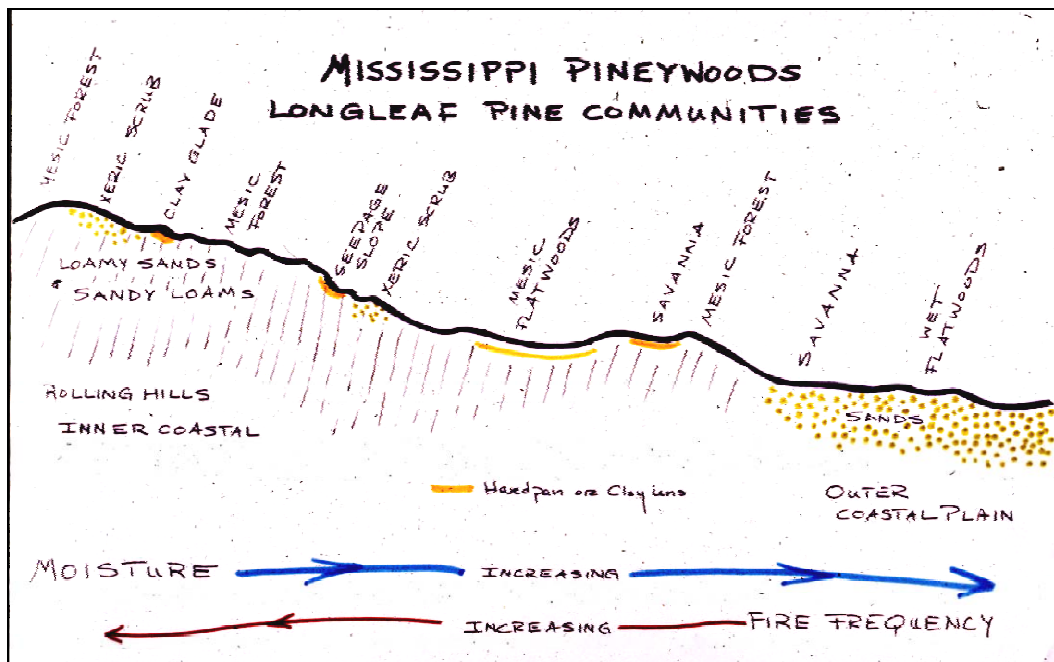 MISSISSIPPI PINEYWOODS
LONGLEAF PINE COMMUNITIES
MESIC FOREST
XERIC SCRUB
CLAY GLADE
MESIC
FOREST
SEEPAGE
SLOPE
XERIC SCRUB
MESIC
FLATWOODS
SAVANNA
MESIC FOREST
SAVANNA
WET
FLATWOODS
LOAMY SANDS
SANDY LOAMS
ROLLING HILLS
INNER COASTAL
SANDS
Hardpan or Clay lens
OUTER
COASTAL PLAIN
MOISTURE INCREASING
INCREASING FIRE FREQUENCY